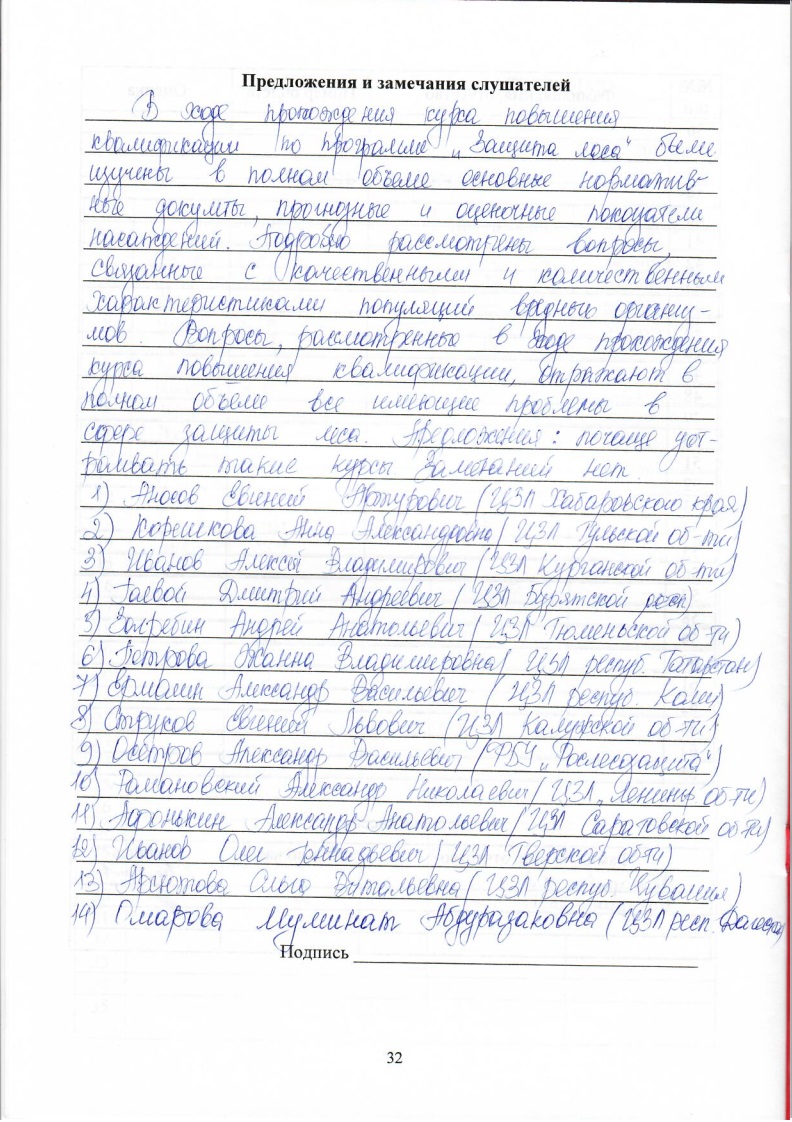 Предложения и замечания слушателей
В ходе прохождения курса повышения
квалификации по программе „Защита леса" были
изучены в полном объеме основные норматив-
ные докумты, прогнозные и оценочные показатели
насаждений. Подробно рассмотрены вопросы,
связанные с качественными и количественным
характеристиками популяций вредных органиу-
мов. Вопросы, рассмотренные в ходе прохождения
курса повышения квалификации, отражают в
полном объеме все имеющие проблемы в
сфере защиты леса. Предложения: почаще уст-
раивать такие курсы Замечаний нет.
1) Аносов Евгений Артурович (ЦЗЛ Хабаровского края)
2) Корешкова Анна Александровна (ЦЗЛ Тульской об-ти)
3) Иванов Алексей Владимирович (ЦЗЛ Курганской об-ти)
4) Гаевой Дмитрий Андреевич (ЦЗЛ Бурятской респ)
5) Андрей Анатольевич (ЦЗЛ Тюменьской об-ти)
6) Петрова Жанна Владимировна (ЦЗЛ респуб. Татарстан)
7) Ермалин Александр Васильевич (ЦЗЛ респуб. Коми)
8) Струков Евгений Львович (ЦЗЛ Калужской об-ти)
9) Осетров Александр Васильевич (ФБУ „Рослесозащита")
10) Романовский Александр Николаевич (ЦЗЛ „Ленингр об-ти)
11) Афонькин Александр Анатольевич (ЦЗЛ Саратовской об-ти)
12) Иванов Олег Геннадьевич (ЦЗЛ Тверской об-ти)
13) Арсютова Ольга Витальевна (ЦЗЛ респуб. Чувашия)
14) Омарова Муминат Абдуразаковна (ЦЗЛ респ. Дагестан
Подпись
32